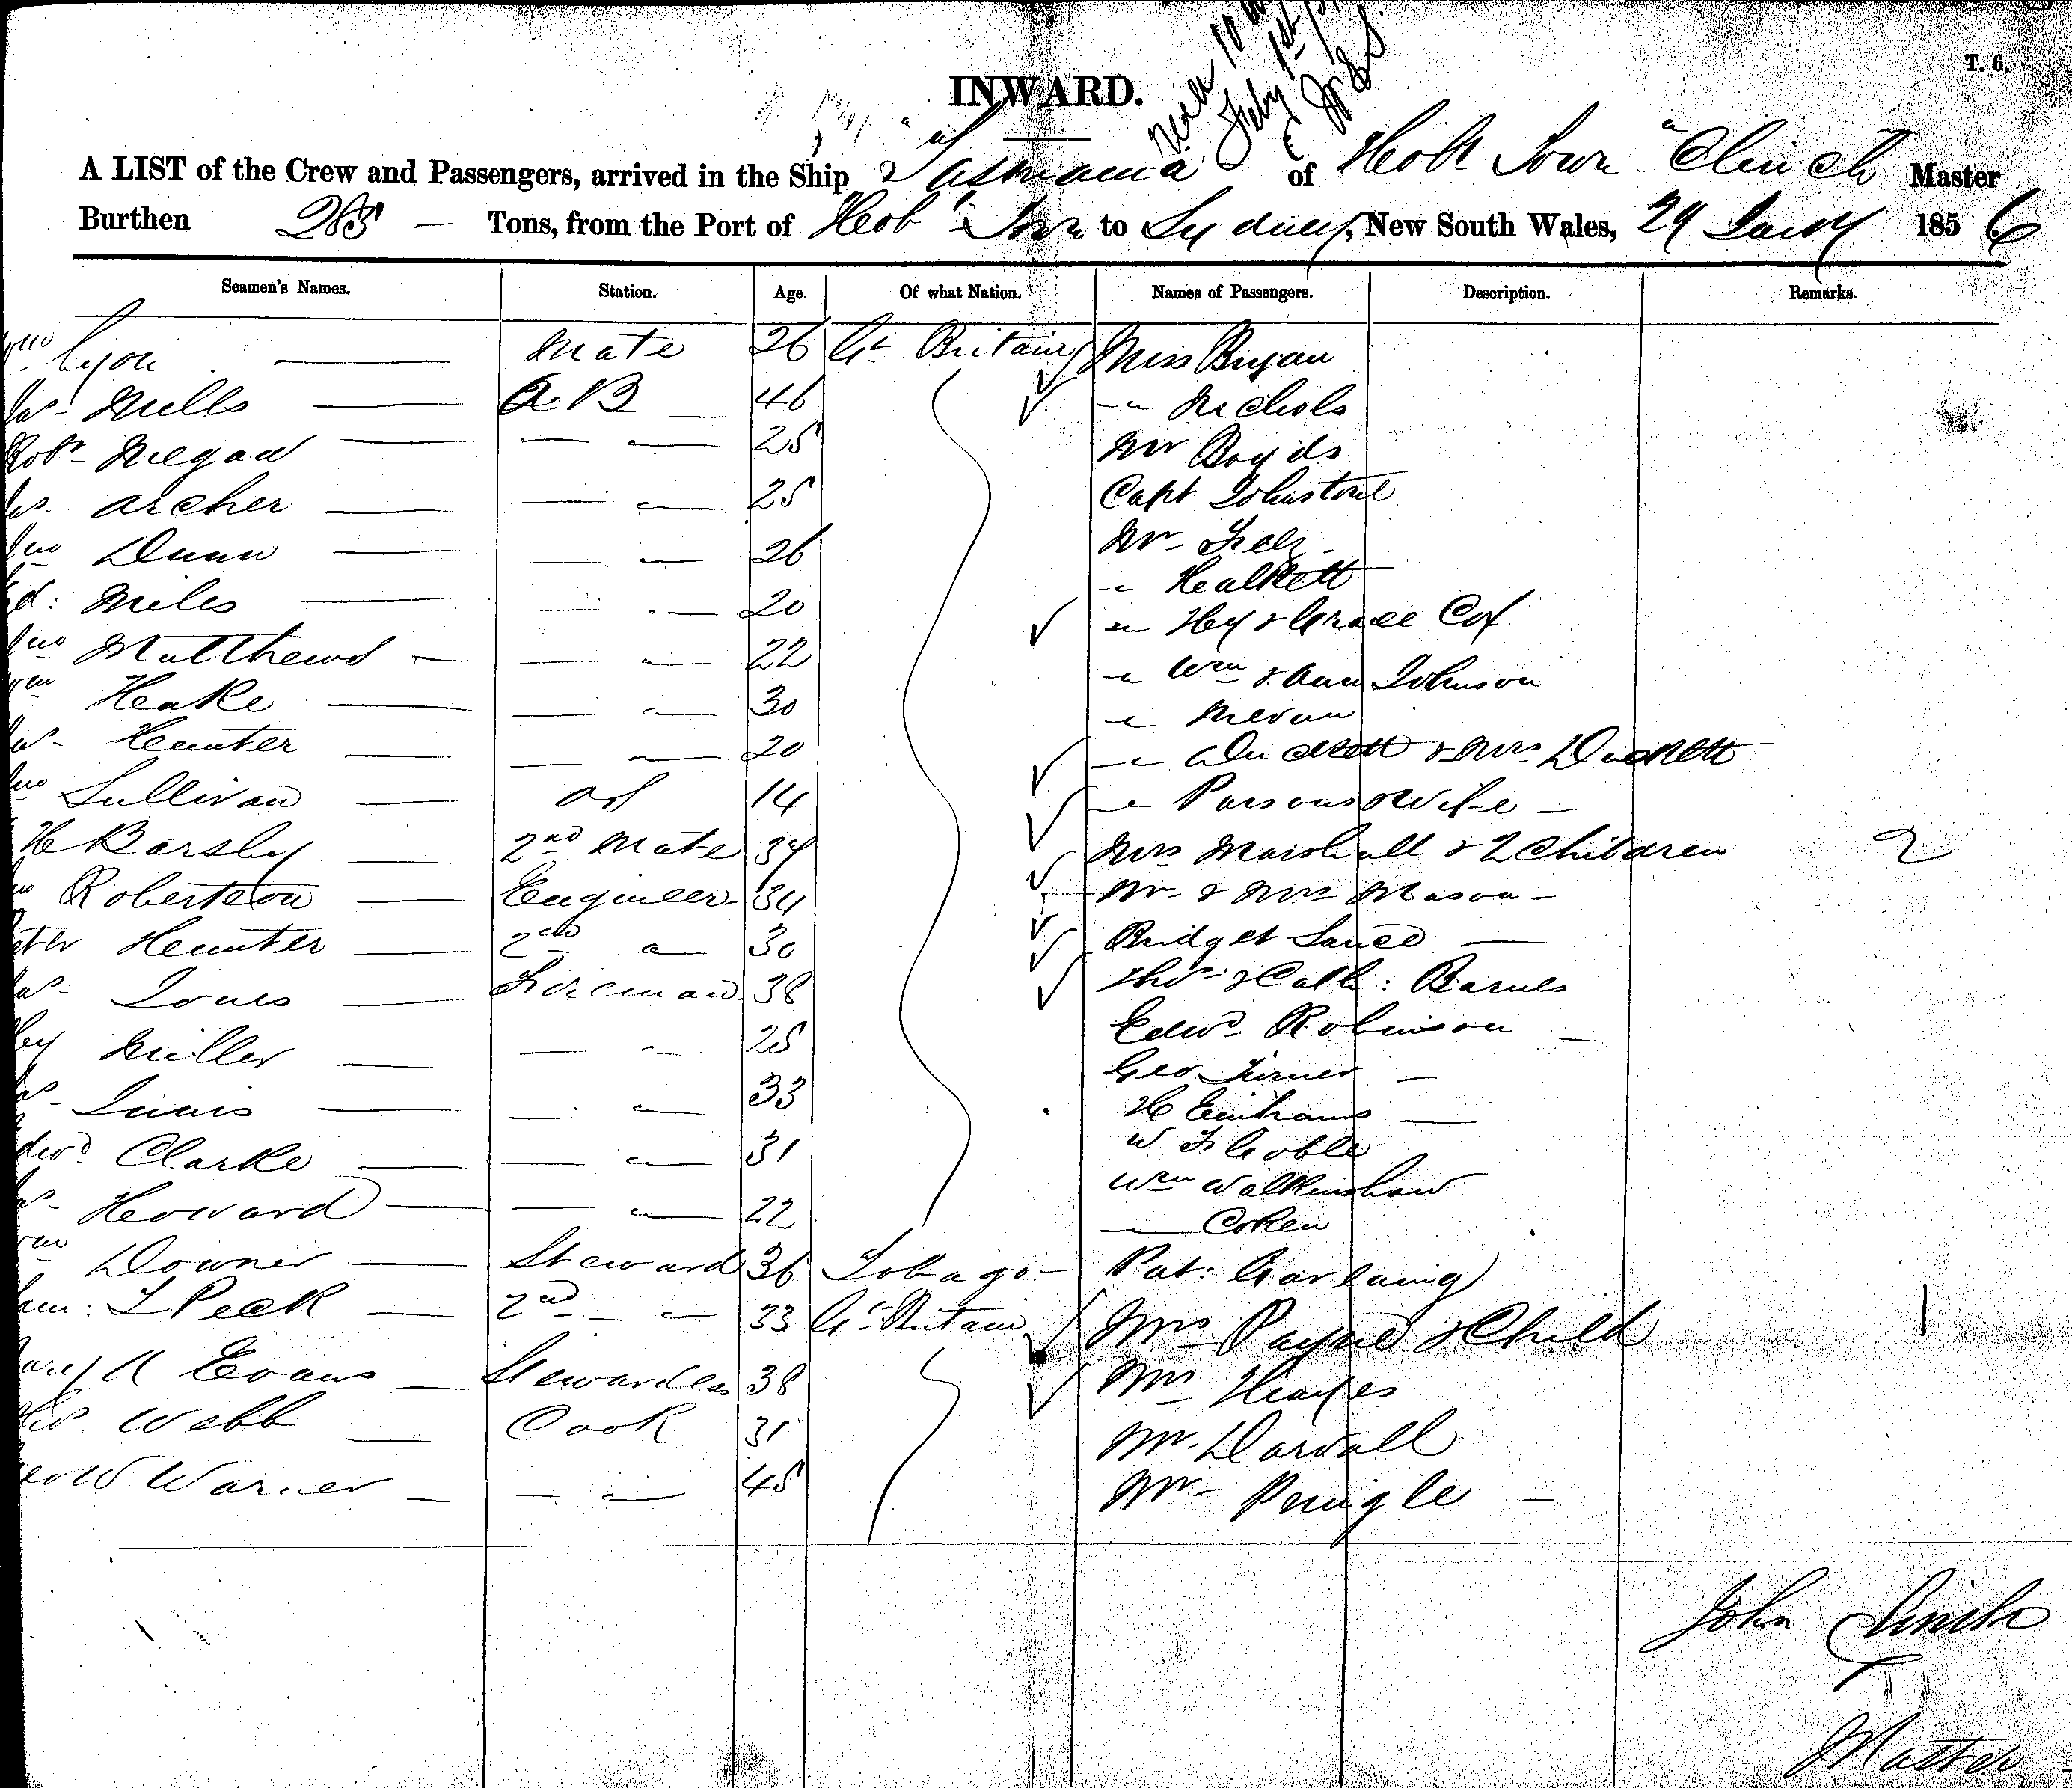 T. 6.
INWARD.
A LIST of the Crew and Passengers, arrived in the Ship Tasmania of Hobt Town Clinch Master
Burthen 285 — Tons, from the Port of Hob Town to Sydney, New South Wales, 29 Jany 1856
Seamen's Names. Station. Age. Of what Nation. Names of Passengers. Description. Remarks.
Lyon — Mate 26 Gt Britain Miss Bryan
Jas Mills — A.B — 46 " Nichols
Robt — " — 25 Mr Boyds
Jas Archer — " — 25 Capt Johnstone
Jno Dunn — " — 26 Mr
Ed: Miles — " — 20 "
Jno Matthews — " — 22 " Hy & Grace Cox
Wm Heake — " — 30 " Wm & Ann Johnson
Jas Hunter — " — 20 "
Jno Sullivan — 14 " Duckett & Mrs Duckett
H Barsby — 2nd Mate 34 " Parsons & Wife —
Robertson — Engineer 34 Mrs Marshall & 2 Children 2
Peter Hunter — 2nd " 30 Mr & Mrs Mason —
Jas Jones — Fireman 38 Bridget —
Hy Miller — " — 25 Thos & Cath: Barnes
Jas Innis — " — 33 Edwd Robinson —
Edwd Clarke — " — 31 Geo Turner —
Jas Howard — " — 22 H —
Wm Downer — Steward 36 Tobago W F Goble
T Peek — 2nd — " 33 Gt Britain Wm Walkinshaw
Mary A Evans — Stewardess 38 — Cohen
Webb — Cook 31 Pat:
Geo W Warner — " — 45 Mrs Payne & Child 1
Mrs Hayes
Mr Darvall
Mr Pringle —
John Clinch
Master